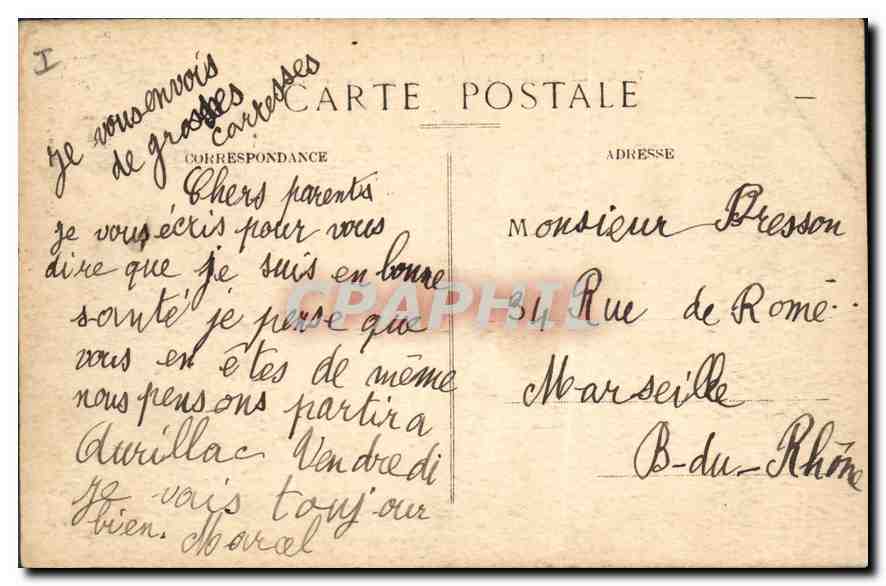 I
Je vous envois
de grosses
caresses
CARTE POSTALE
CORRESPONDANCE
Chers parents
je vous écris pour vous
dire que je suis en bonne
santé je pense que
vous en êtes de même
nous pensons partir a
Aurillac Vendredi
Je vais toujour
bien. Marcel
ADRESSE
Monsieur Bresson
34 Rue de Rome
Marseille
B-du-Rhône
CPAPHIL